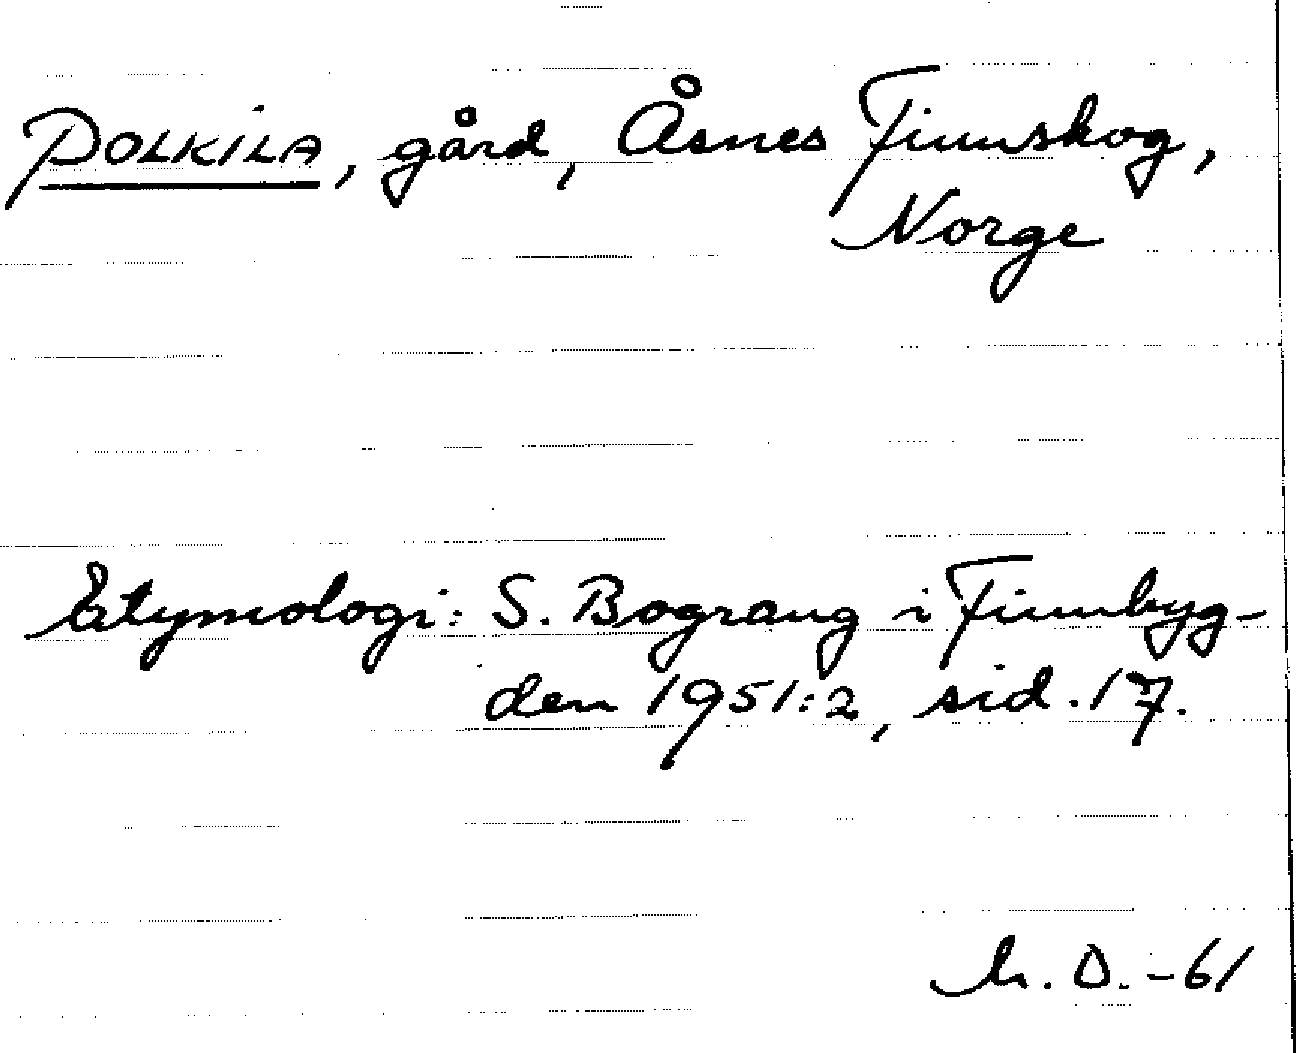 POLKILA, gård, Åsnes Finnskog,
Norge
Etymologi: S. Bograng i Finnbyg-
den 1951:2, sid. 17.
D. -61